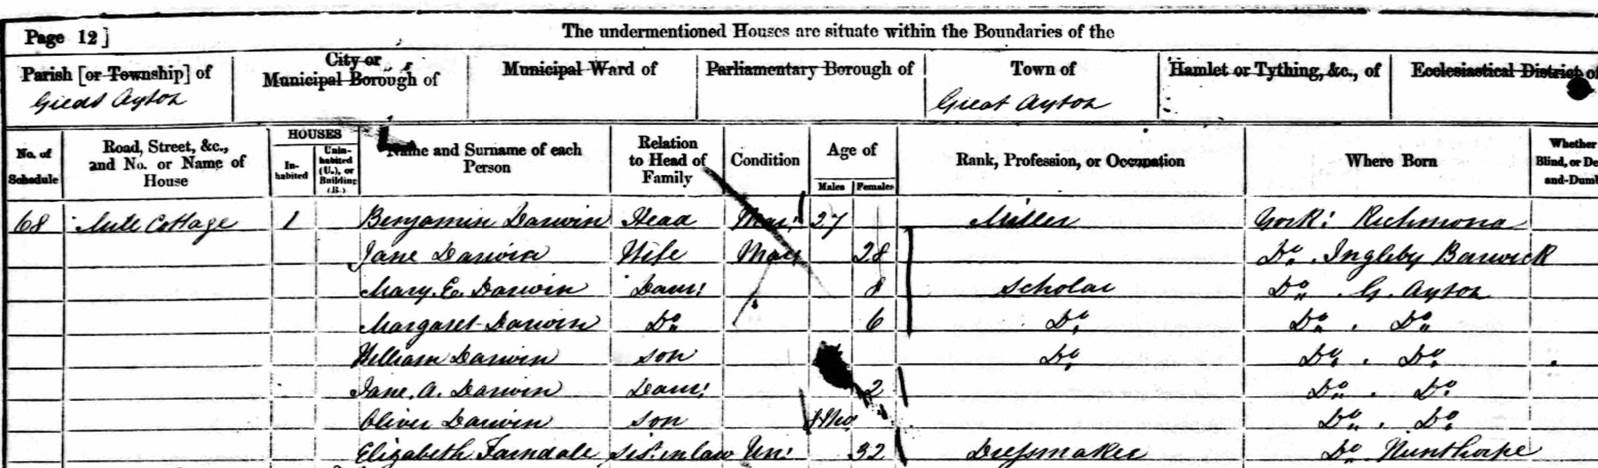 Page 12]
The undermentioned Houses are situate within the Boundaries of the
Parish [or Township] of City or Municipal Borough of Municipal Ward of Parliamentary Borough of Town of Hamlet or Tything, &c., of Ecclesiastical District of
Great Ayton Great Ayton
No. of Schedule Road, Street, &c., and No. or Name of House HOUSES In-habited Unin-habited (U.), or Building (B.) Name and Surname of each Person Relation to Head of Family Condition Age of Males Females Rank, Profession, or Occupation Where Born Whether Blind, or De and-Dumb
68 Mill Cottage 1 Benjamin Darwin Head Mar: 27 Miller York: Richmond
Jane Darwin Wife Mar 28 Do. Ingleby Barwick
Mary E. Darwin Daur: 8 Scholar Do. G. Ayton
Margaret Darwin Do. 6 Do. Do. Do.
William Darwin son Do. Do. Do.
Jane. A. Darwin Daur: 2 Do. Do.
Oliver Darwin son Mo Do. Do.
Elizabeth Farndale sist. in law Un: 32 Dressmaker Do. Nunthorpe